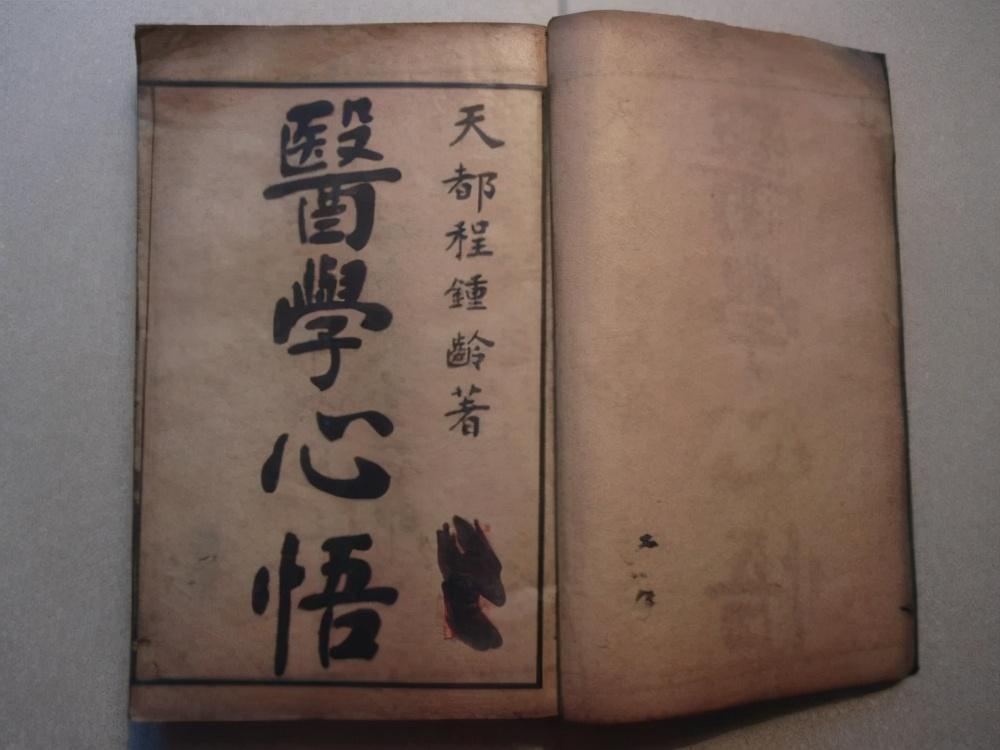 天都程鍾齡著
醫學心悟